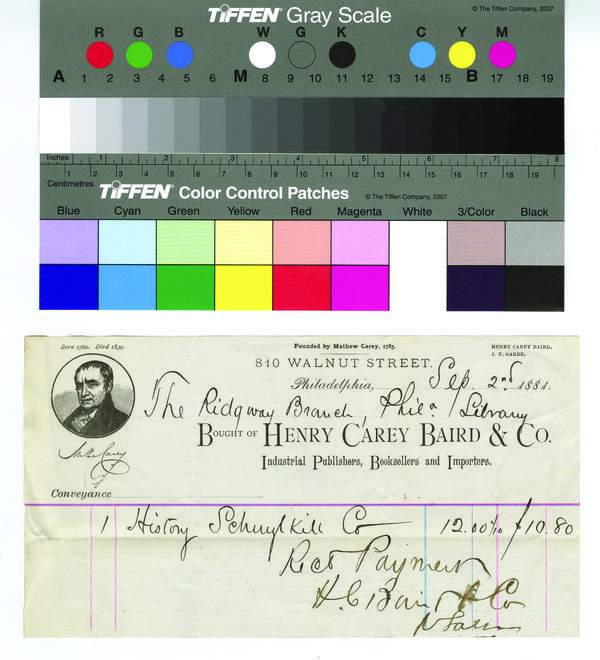 TIFFEN® Gray Scale
© The Tiffen Company, 2007
R G B W G K C Y M
A 1 2 3 4 5 6 M 8 9 10 11 12 13 14 15 B 17 18 19
Inches 1 2 3 4 5 6 7 8
Centimetres 1 2 3 4 5 6 7 8 9 10 11 12 13 14 15 16 17 18 19
TIFFEN® Color Control Patches
© The Tiffen Company, 2007
Blue Cyan Green Yellow Red Magenta White 3/Color Black
Born 1760. Died 1839.
Founded by Mathew Carey, 1785.
HENRY CAREY BAIRD,
J. F. GARDE.
810 WALNUT STREET.
Philadelphia, Sep. 2nd 1881.
The Ridgway Branch, Phila Library
BOUGHT OF HENRY CAREY BAIRD & CO.
Industrial Publishers, Booksellers and Importers.
Mathew Carey
Conveyance
1 History Schuylkill Co 12.00 $10.80
Recd Payment
H. C. Baird & Co